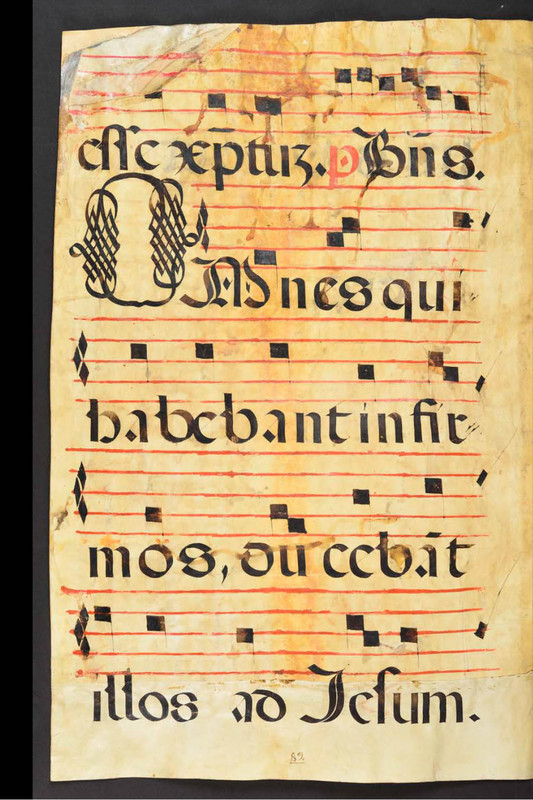 esse xp̄tuz. p Bn̄s.
OMnes qui
habebant infir
mos, ducebāt
illos ad Jesum.
82